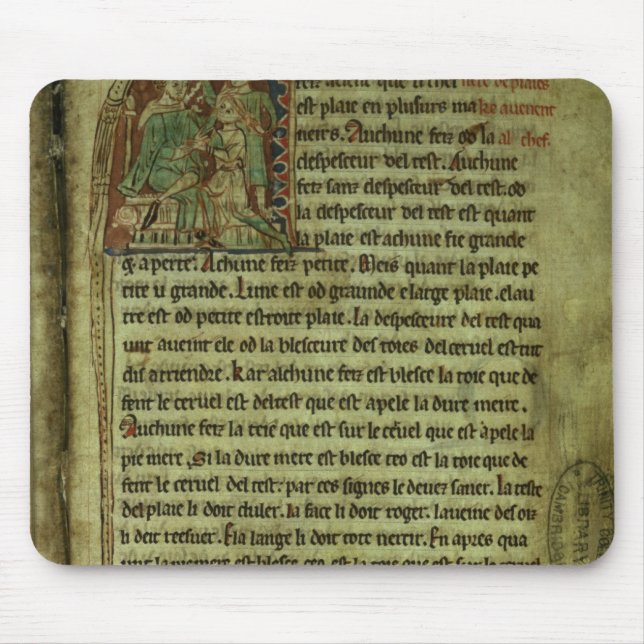 feiz avient que li chef nere de plaies
est plaie en plusurs ma ke avenent
neirs. Auchune feiz od la al chef.
despesceur del test. Auchune
feiz sanz despesceur del test. od
la despesceur del test est quant
la plaie est achune fie grande
& aperte. Achune feiz petite. Meis quant la plaie pe
tite u grande. Lune est od graunde e large plaie. elau
tre est od petite estroite plaie. La despesceure del test qua
unt avient ele od la blesceure des toies del cervel est tut
dis a triendre. kar alchune feiz est blesce la toie que de
fent le cervel est del test que est apele la dure mere.
Auchune feiz la teie que est sur le cervel que est apele la
pie mere. Si la dure mere est blesce ceo est la toie que de
fent le cervel del test. par ces signes le devez saver. La teste
del plaie li doit duler. la face li doit roger. la veine des oiz
li doit reesuer. E la lange li doit tote nercir. En apres qua
unt la pie mere est blesce ceo est la toie que est sur le cervel
TRINITY COL
LIBRARY
CAMBRIDGE